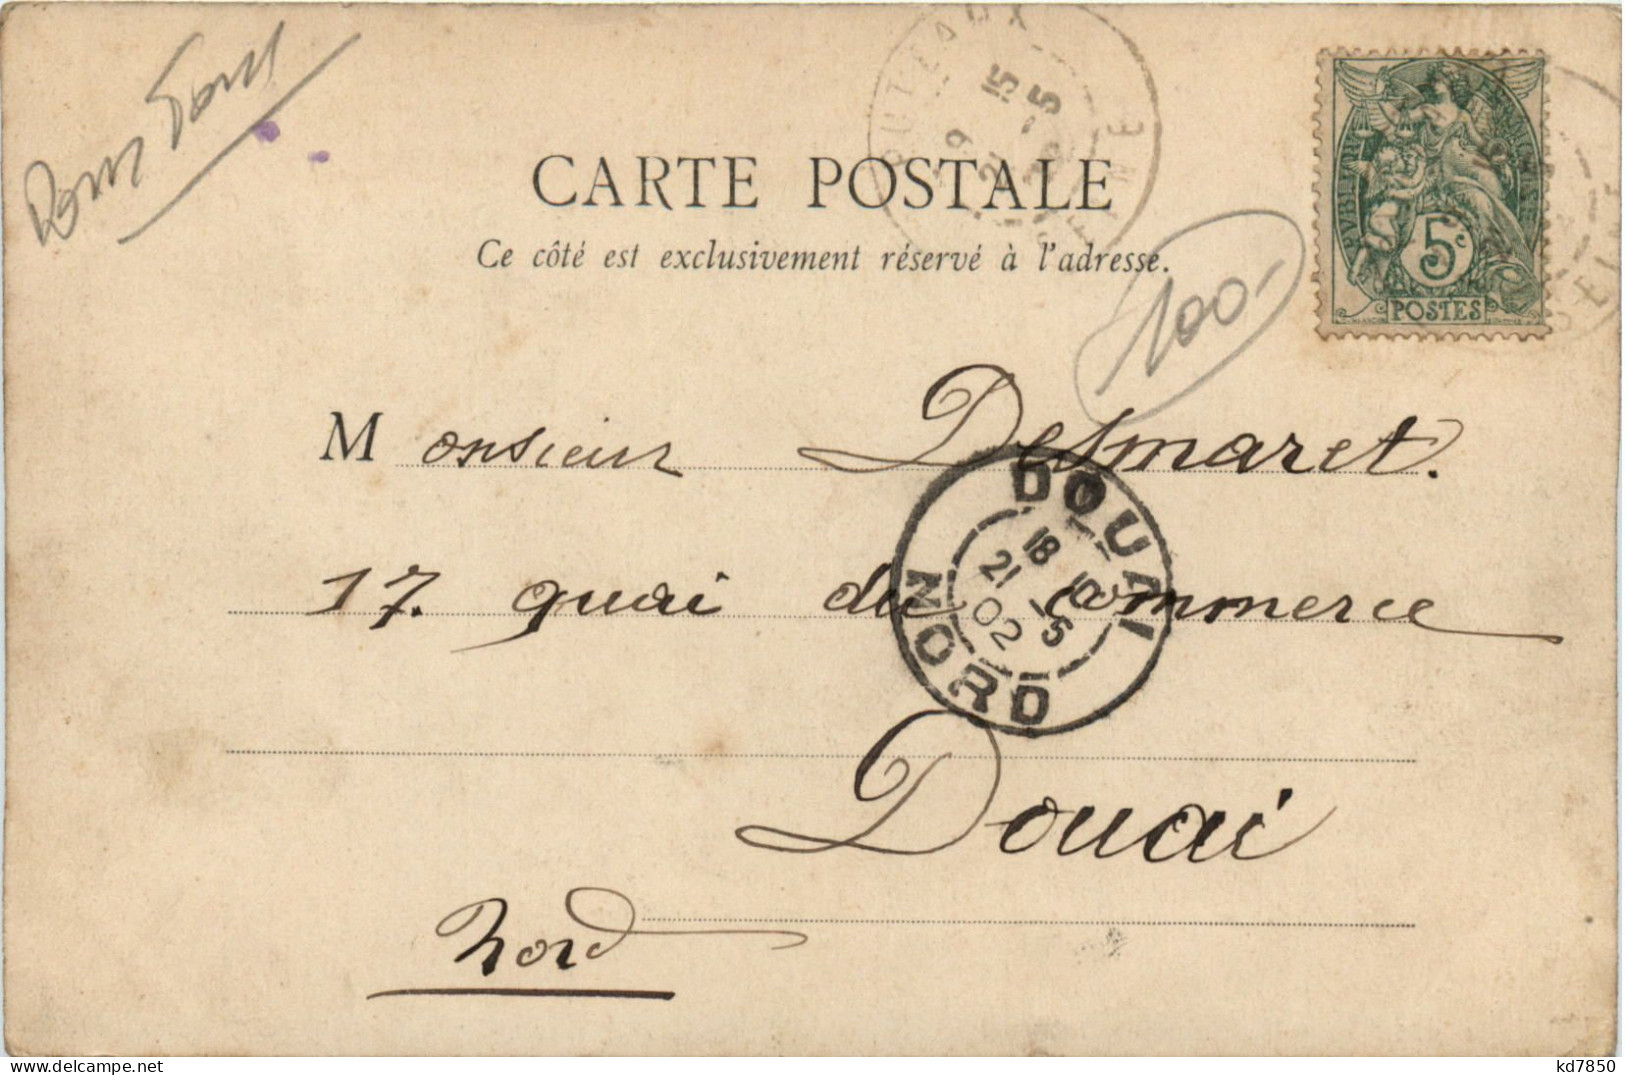 CARTE POSTALE
Ce côté est exclusivement réservé à l'adresse.
PUTEAUX
SEINE
RÉPUBLIQUE FRANÇAISE
5c
POSTES
100-
Monsieur Desmaret.
17. quai du Commerce
Douai
Nord
DOUAI
18 10
21 -5
02
NORD
kd7850